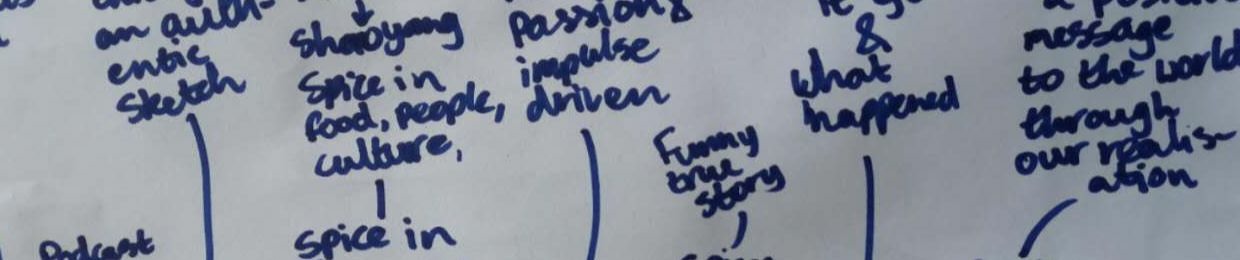 an auth-
entic
sketch
Shaoyang
Spice in
food, people,
culture,
spice in
passion &
impulse
driven
Funny
true
story
&
what
happened
message
to the world
through
our realis-
ation
Podcast